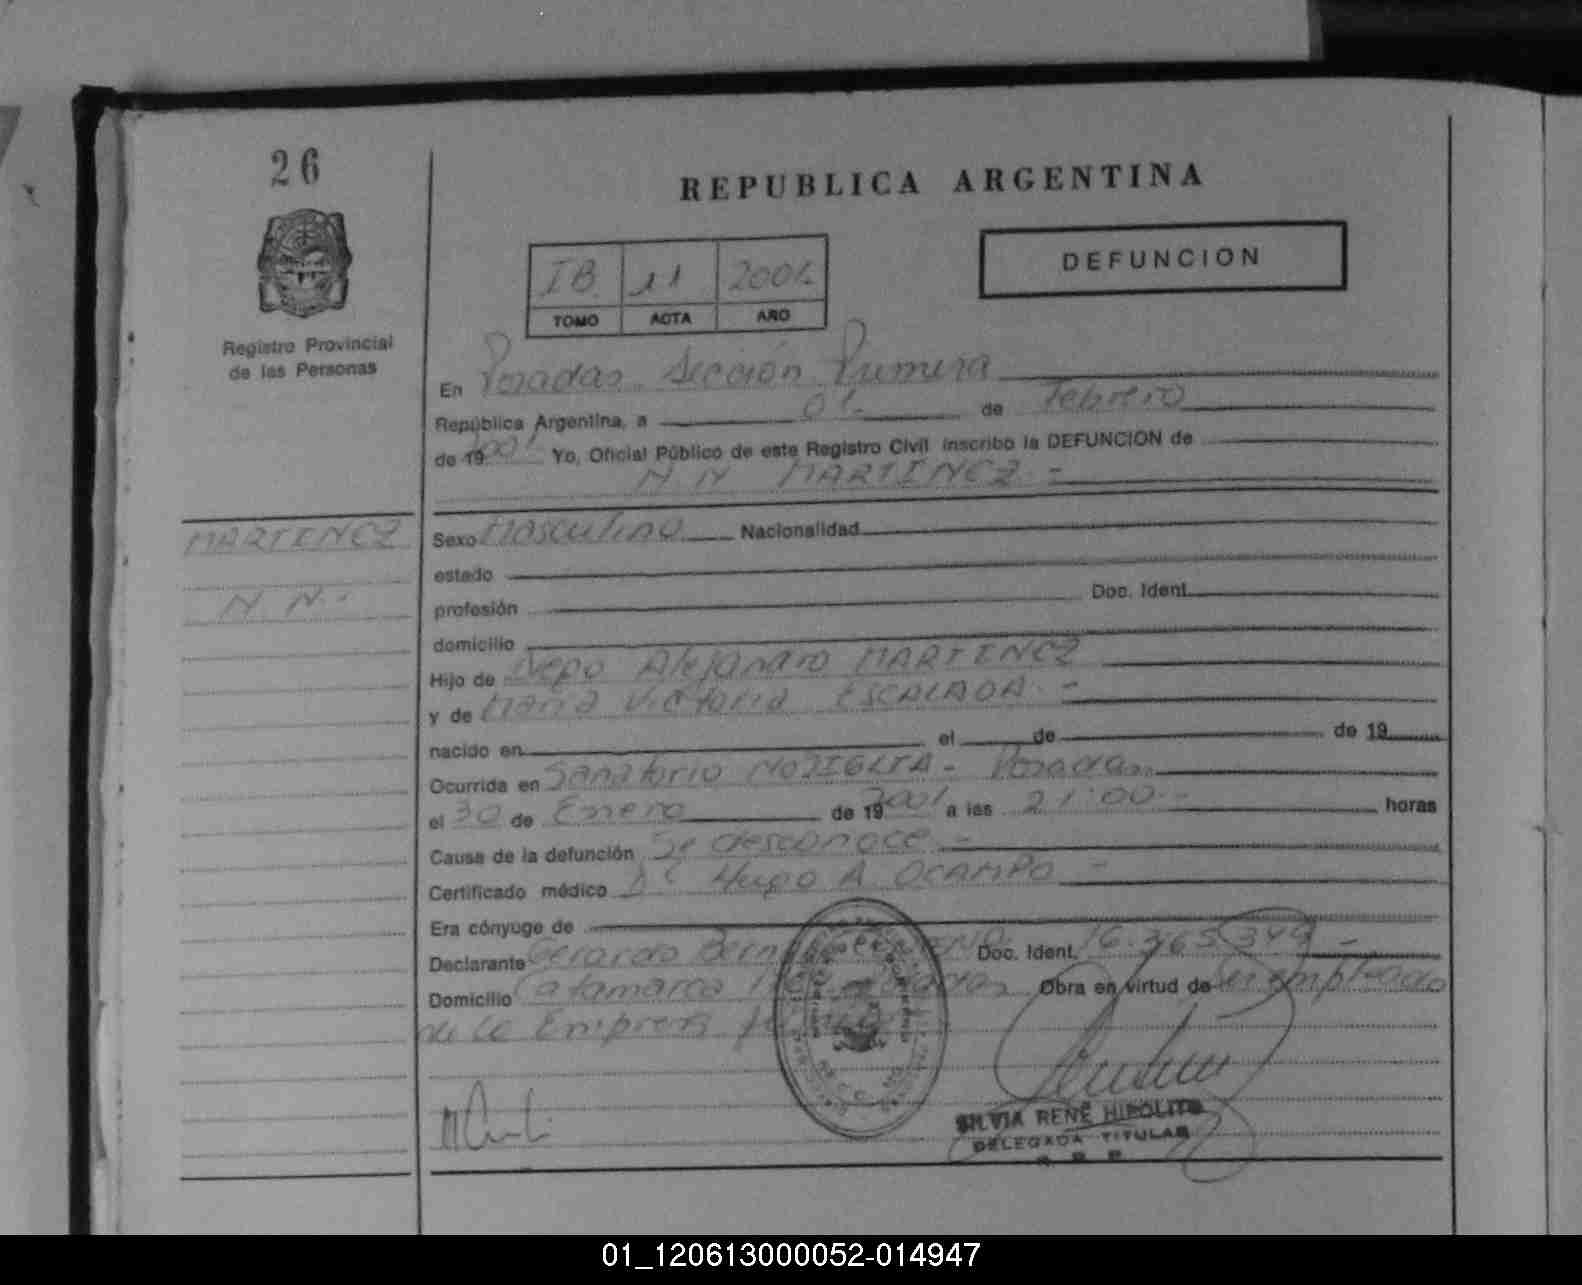 26
REPUBLICA ARGENTINA
Registro Provincial
de las Personas
IB 11 2001
TOMO ACTA AÑO
DEFUNCION
En Posadas Sección Primera
República Argentina, a 01 de Febrero
de 19 2001 Yo, Oficial Público de este Registro Civil inscribo la DEFUNCION de
N N MARTINEZ -
MARTINEZ
N N.-
Sexo Masculino Nacionalidad
estado
profesión Doc. Ident.
domicilio
Hijo de Alejandro MARTINEZ
y de Maria Victoria ESCALADA -
nacido en el de de 19
Ocurrida en Sanatorio - Posadas
el 30 de Enero de 19 2001 a las 21:00.- horas
Causa de la defunción Se desconoce -
Certificado médico Dr Hugo A OCAMPO -
Era cónyuge de
Declarante Gerardo Doc. Ident. 16.365.349 -
Domicilio Catamarca Posadas Obra en virtud de Ser empleado
de la Empresa
SILVIA RENÉ HIPOLITO
DELEGADA TITULAR
R. P. P.
01_120613000052-014947